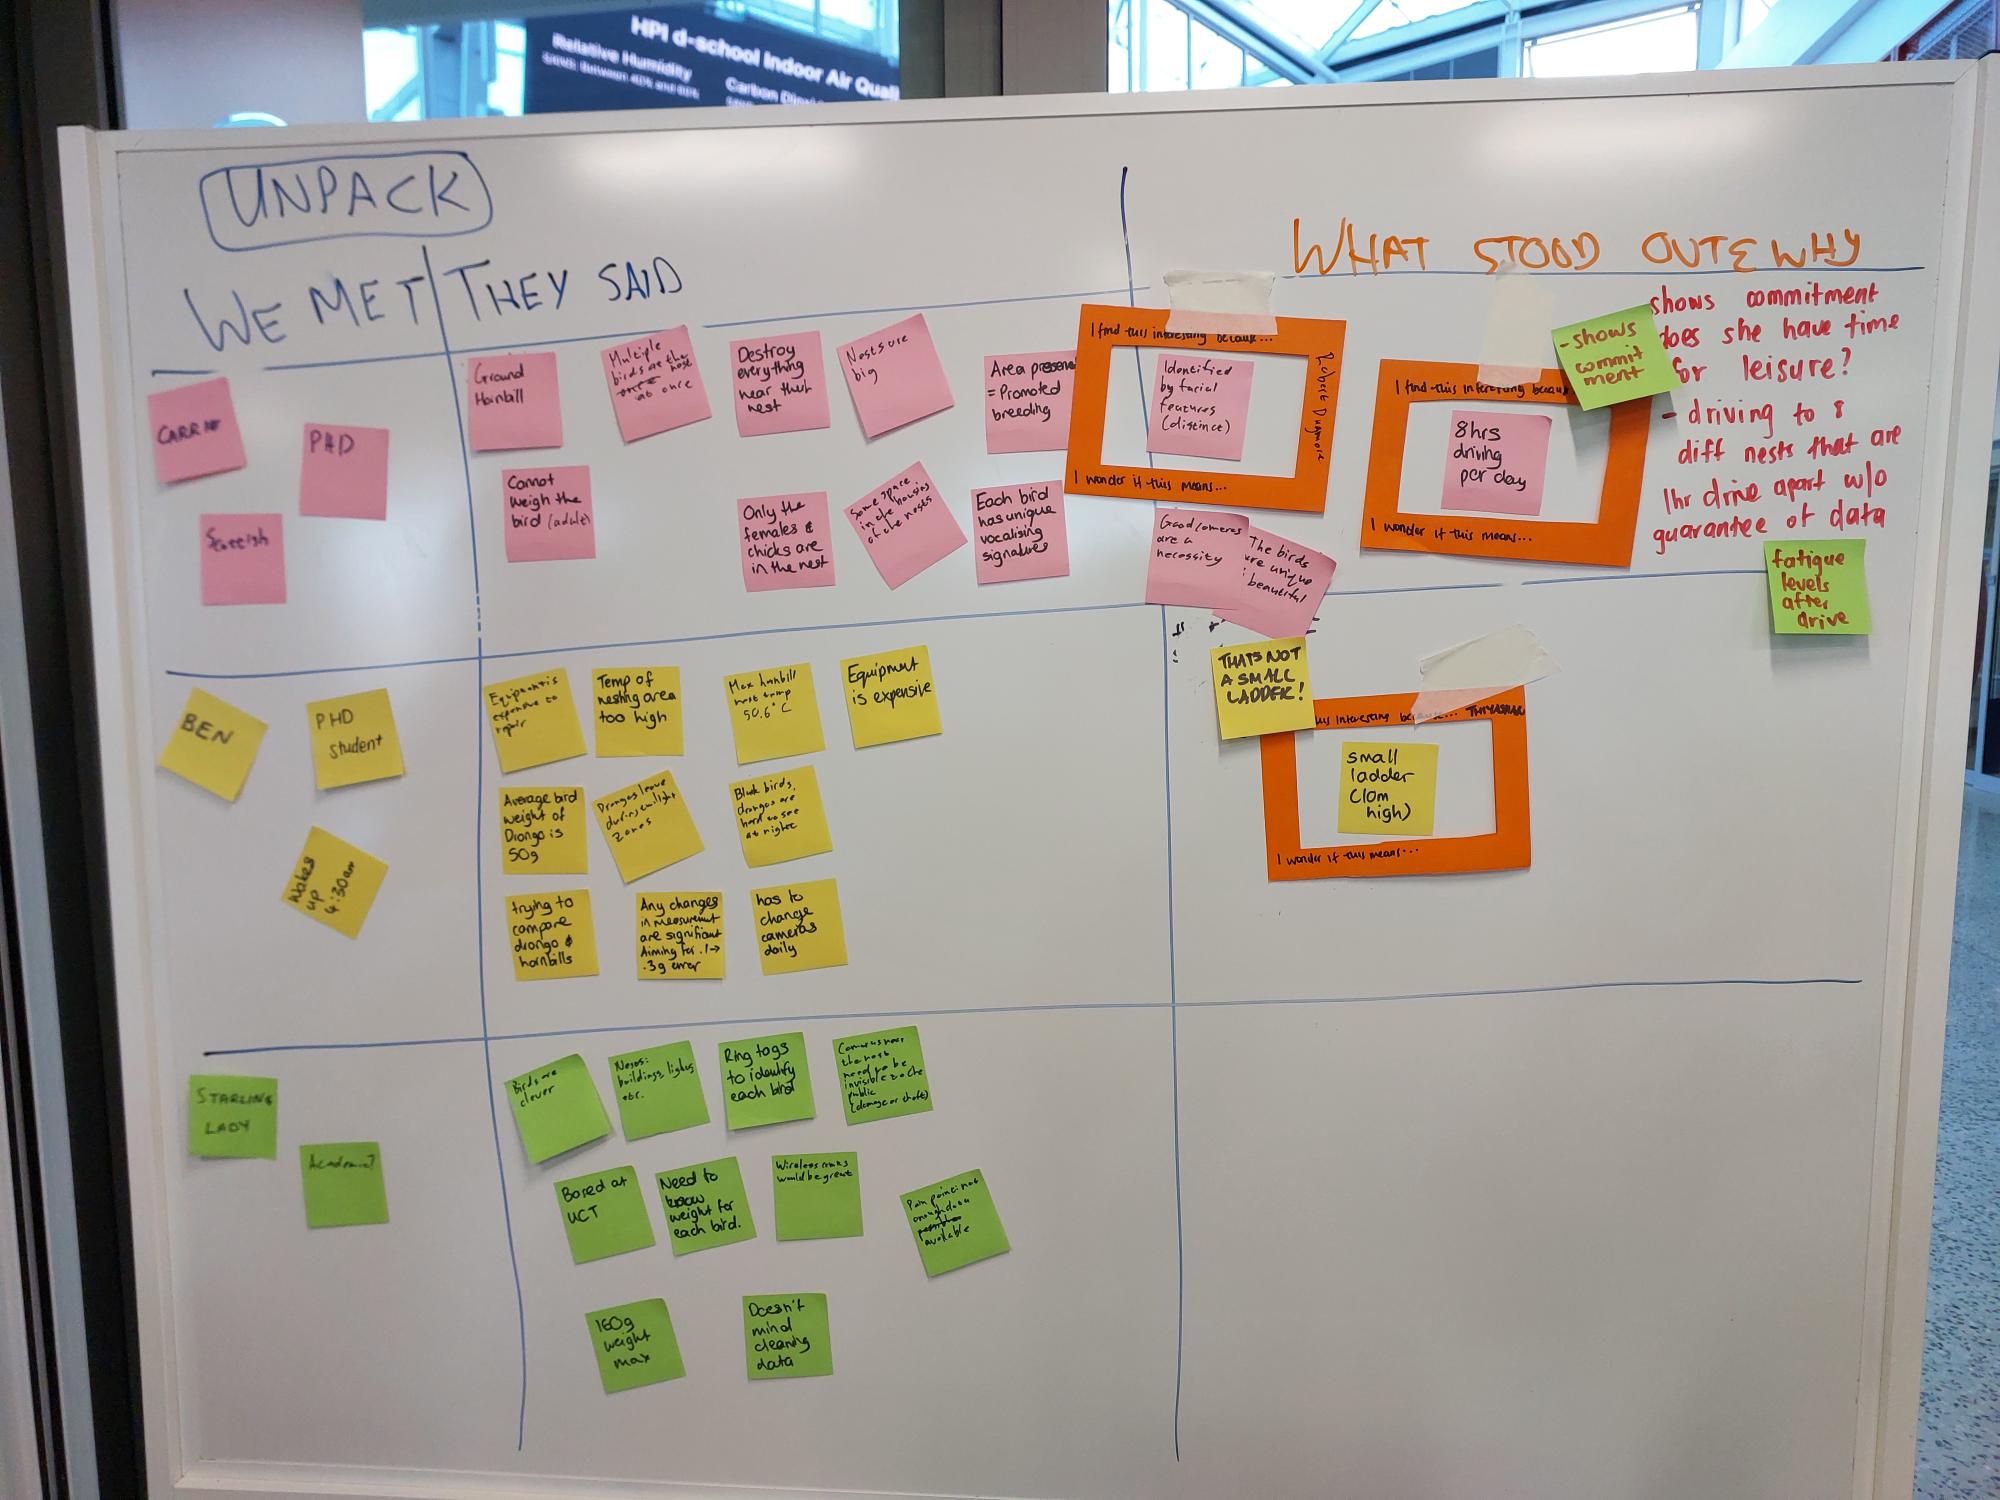 HPI d-school Indoor Air Quali
Relative Humidity
Carbon Diox
UNPACK
WE MET
THEY SAID
WHAT STOOD OUT & WHY
CARRIE
PHD
Scottish
Ground
Hornbill
Multiple
birds are the nest
at once
Destroy
everything
near their
nest
Nests are
big
Area preserved
= Promoted
breeding
Cannot
weigh the
bird (adult)
Only the
females &
chicks are
in the nest
Some space
in the housing
of the nests
Each bird
has unique
vocalising
signatures
I find this interesting because...
Identified
by facial
features
(distince)
I wonder if this means...
Good cameras
are a
necessity
The birds
are unique
beautiful
I find this interesting becaus
8hrs
driving
per day
I wonder if this means...
- shows
commit
ment
shows commitment
does she have time
for leisure?
- driving to 8
diff nests that are
1hr drive apart w/o
guarantee of data
fatigue
levels
after
drive
BEN
PHD
student
Wakes
up
4:30am
Equipment is
expensive to
repair
Temp of
nesting area
too high
Max hornbill
nest temp
50.6°C
Equipment
is expensive
Average bird
weight of
Drongo is
50g
Drongos leave
during twilight
zones
Black birds,
drongos are
hard to see
at night
trying to
compare
drongo &
hornbills
Any changes
in measurement
are significant
Aiming for .1→
.3g error
has to
change
cameras
daily
THATS NOT
A SMALL
LADDER!
his interesting because...
small
ladder
(10m
high)
I wonder if this means...
STARLING
LADY
Academic?
Birds are
clever
Nests:
buildings, lights
etc.
Ring tags
to identify
each bird
Cameras near
the nest
need to be
invisible to the
public
(damage or theft)
Based at
UCT
Need to
know
weight for
each bird.
Wireless comms
would be great
Pain point: not
enough data
possible
available
160g
weight
max
Doesn't
mind
cleaning
data